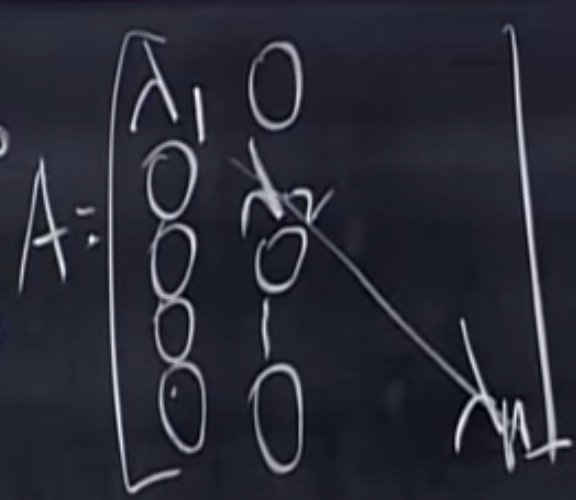 λ₁ 0
0 λ₂
A = 0 0
0 |
0 0 λₙ